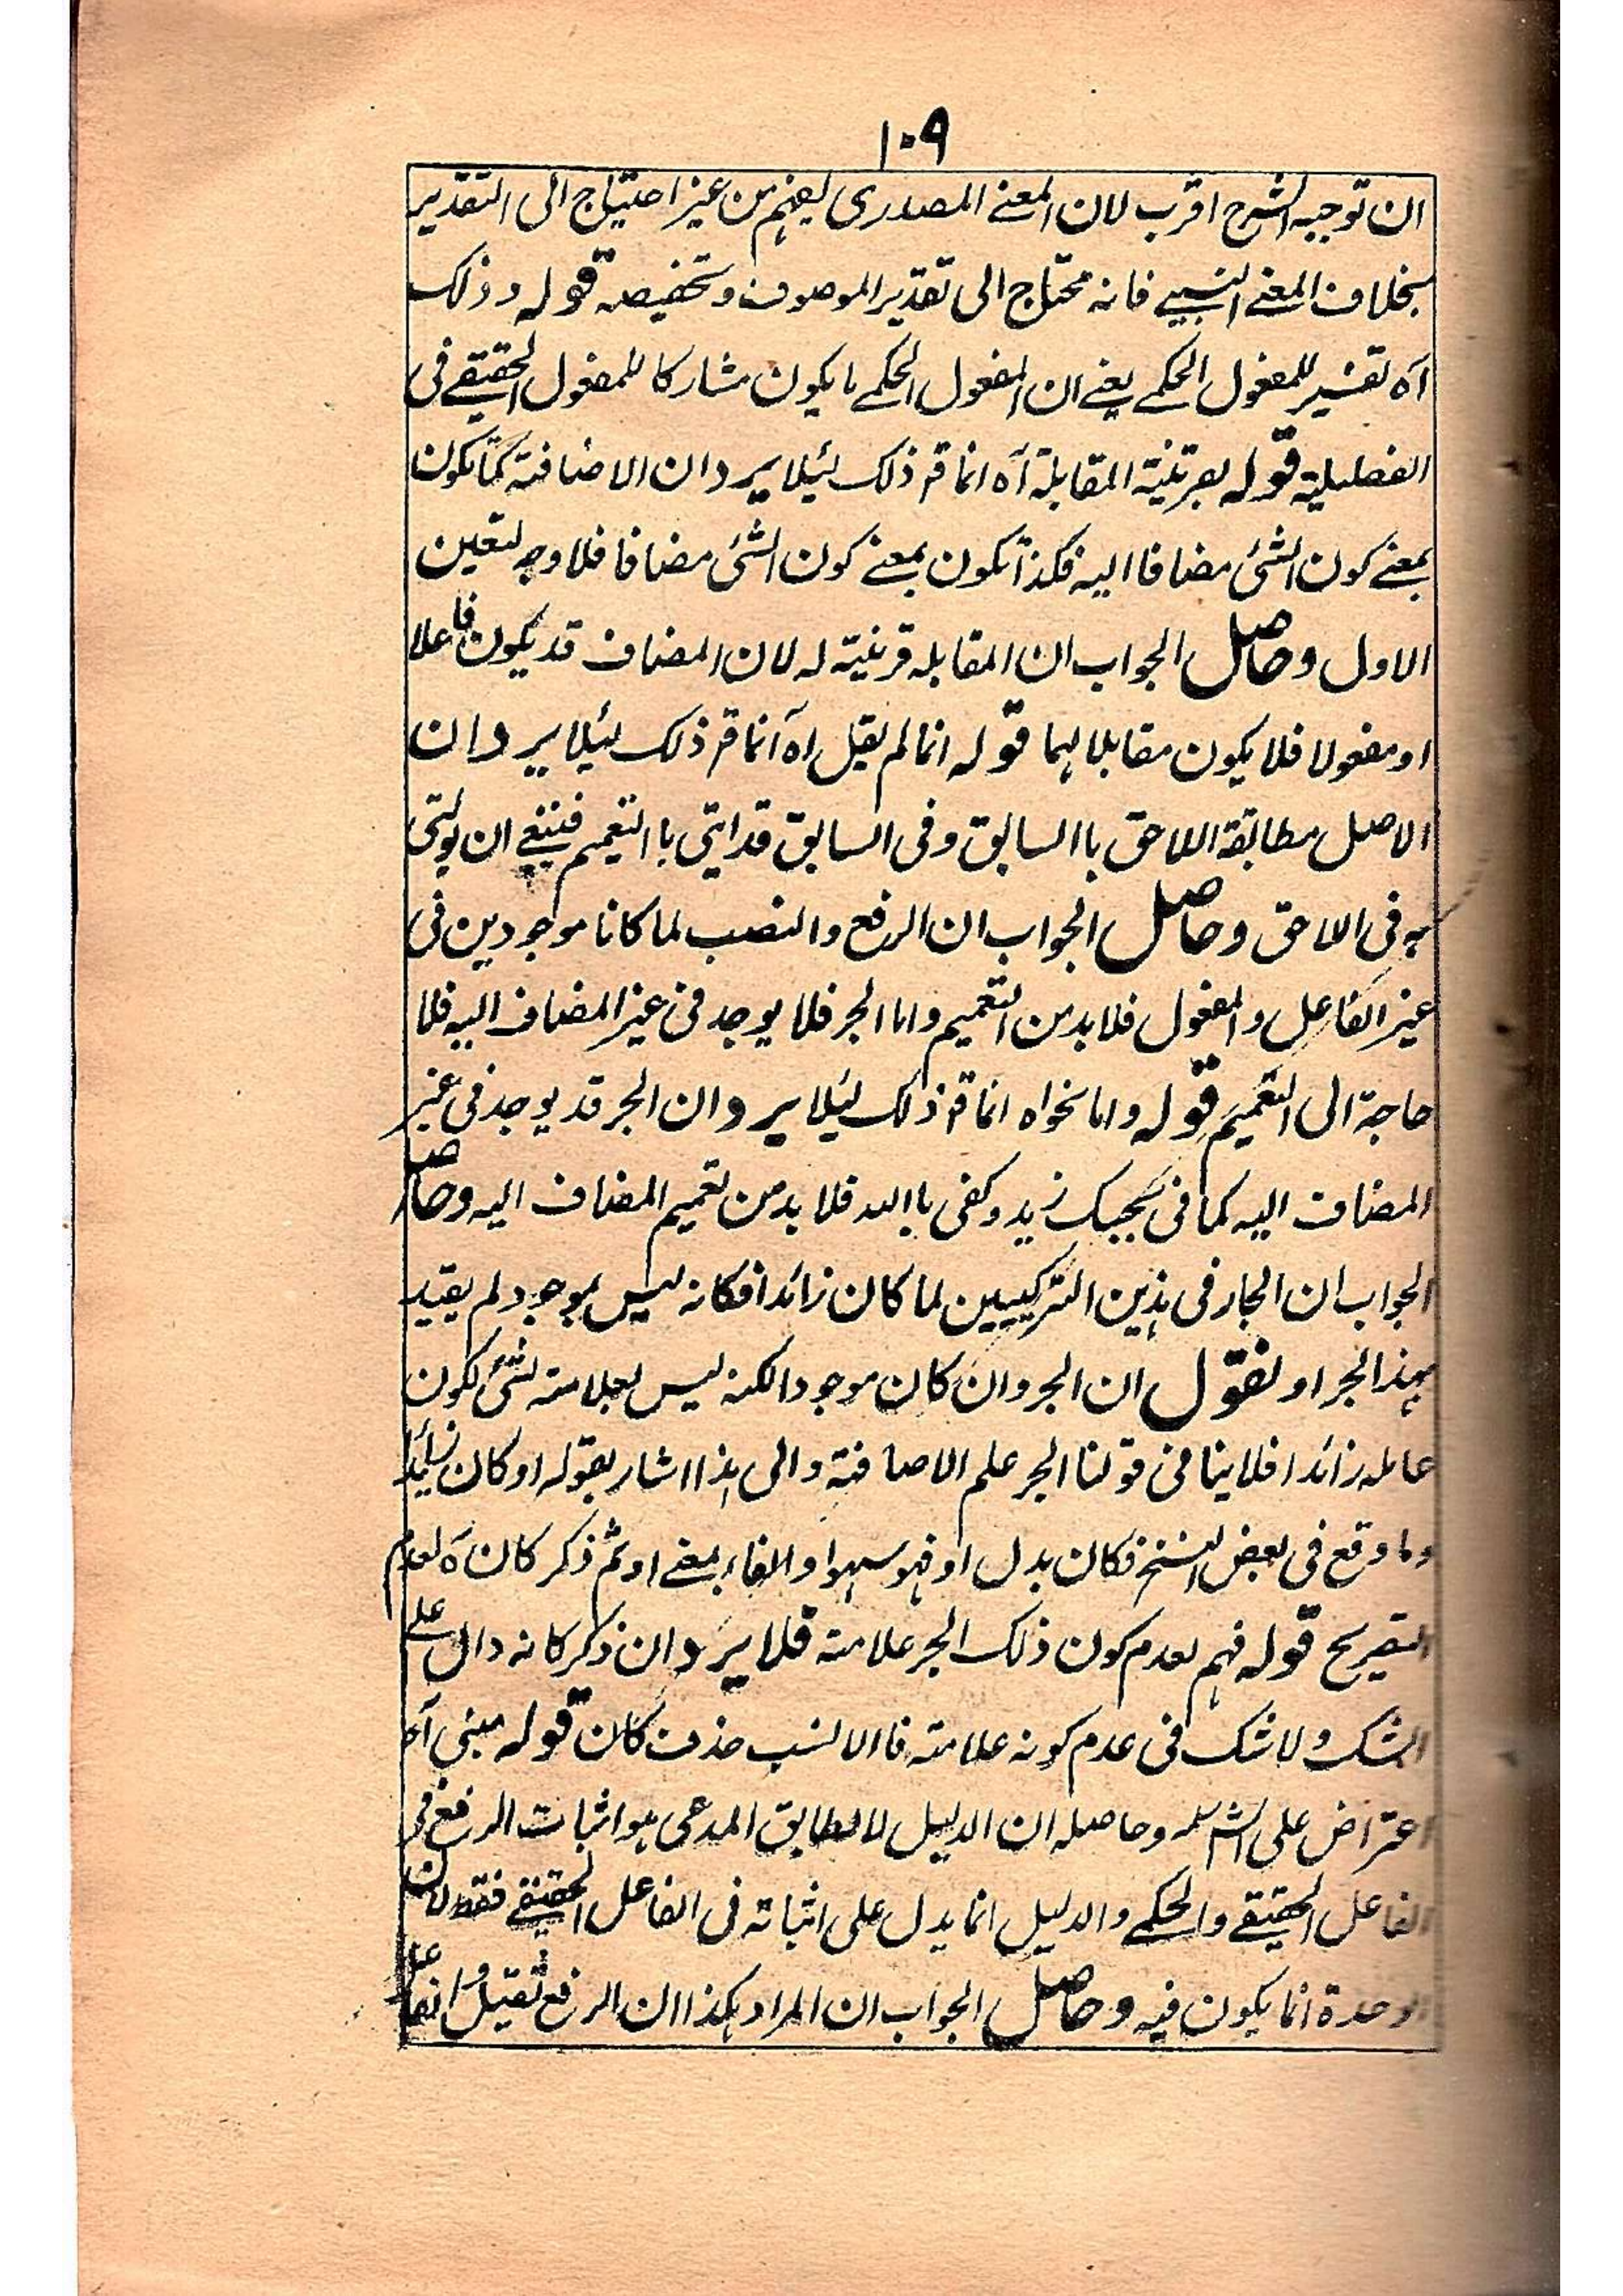 ١٠٩
ان توجيه الشرح اقرب لان المعنے المصدرى يفهم من غير احتياج الى التقدير
بخلاف المعنے النسبے فانه محتاج الى تقدير الموصوف وتخصيصه قوله وذلك
آه تفسير للمفعول الحكمے يعنے ان المفعول الحكمے ما يكون مشاركا للمفعول الحقيقے فى
الفضلية قوله بقرينة المقابلة آه انما قم ذلك لئيلا يرد ان الاضافة كما تكون
بمعنے كون الشئ مضافا اليه فكذا تكون بمعنے كون الشئ مضافا فلا وجه لتعين
الاول وحاصل الجواب ان المقابله قرينة له لان المضاف قد يكون فاعلا
او مفعولا فلا يكون مقابلا لهما قوله انما لم يقل اه انما قم ذلك لئيلا يرد ان
الاصل مطابقة اللاحق باالسابق وفى السابق قد اتى باالتعميم فينبغے ان يوتى
به فى اللاحق وحاصل الجواب ان الرفع والنصب لما كانا موجودين فى
غير الفاعل والمفعول فلا بد من التعميم واما الجر فلا يوجد فى غير المضاف اليه فلا
حاجة الى التعميم قوله واما نحواه انما قم ذلك لئيلا يرد ان الجر قد يوجد فى غير
المضاف اليه كما فى بحسبك زيد وكفى باالله فلا بد من تعميم المضاف اليه وحاصل
الجواب ان الجار فى هذين التركيبين لما كان زائدا فكانه ليس بموجود لم يقيد
بهذا الجر او نقول ان الجر وان كان موجودا لكنه ليس بعلامته لشئ لكون
عامله زائدا فلا ينافى قولنا الجر علم الاضافة والى هذا اشار بقوله او كان زائدا
وما وقع فى بعض النسخ فكان بدل او فهو سهو او الفاء بمعنے او ثم ذكر كان ه لعدم
التصريح قوله فهم بعدم كون ذلك الجر علامته فلا يرد ان ذكر كانه دال علے
الشك ولا شك فى عدم كونه علامته فاالانسب حذف كان قوله مبنى آه
اعتراض على الش وحاصله ان الدليل لا يطابق المدعى هو اثبات الرفع فى
الفاعل الحقيقے والحكمے والدليل انما يدل على اثباته فى الفاعل الحقيقے فقط لان
الوحدة انما يكون فيه وحاصل الجواب ان المراد هكذا ان الرفع ثقيل والفاعل